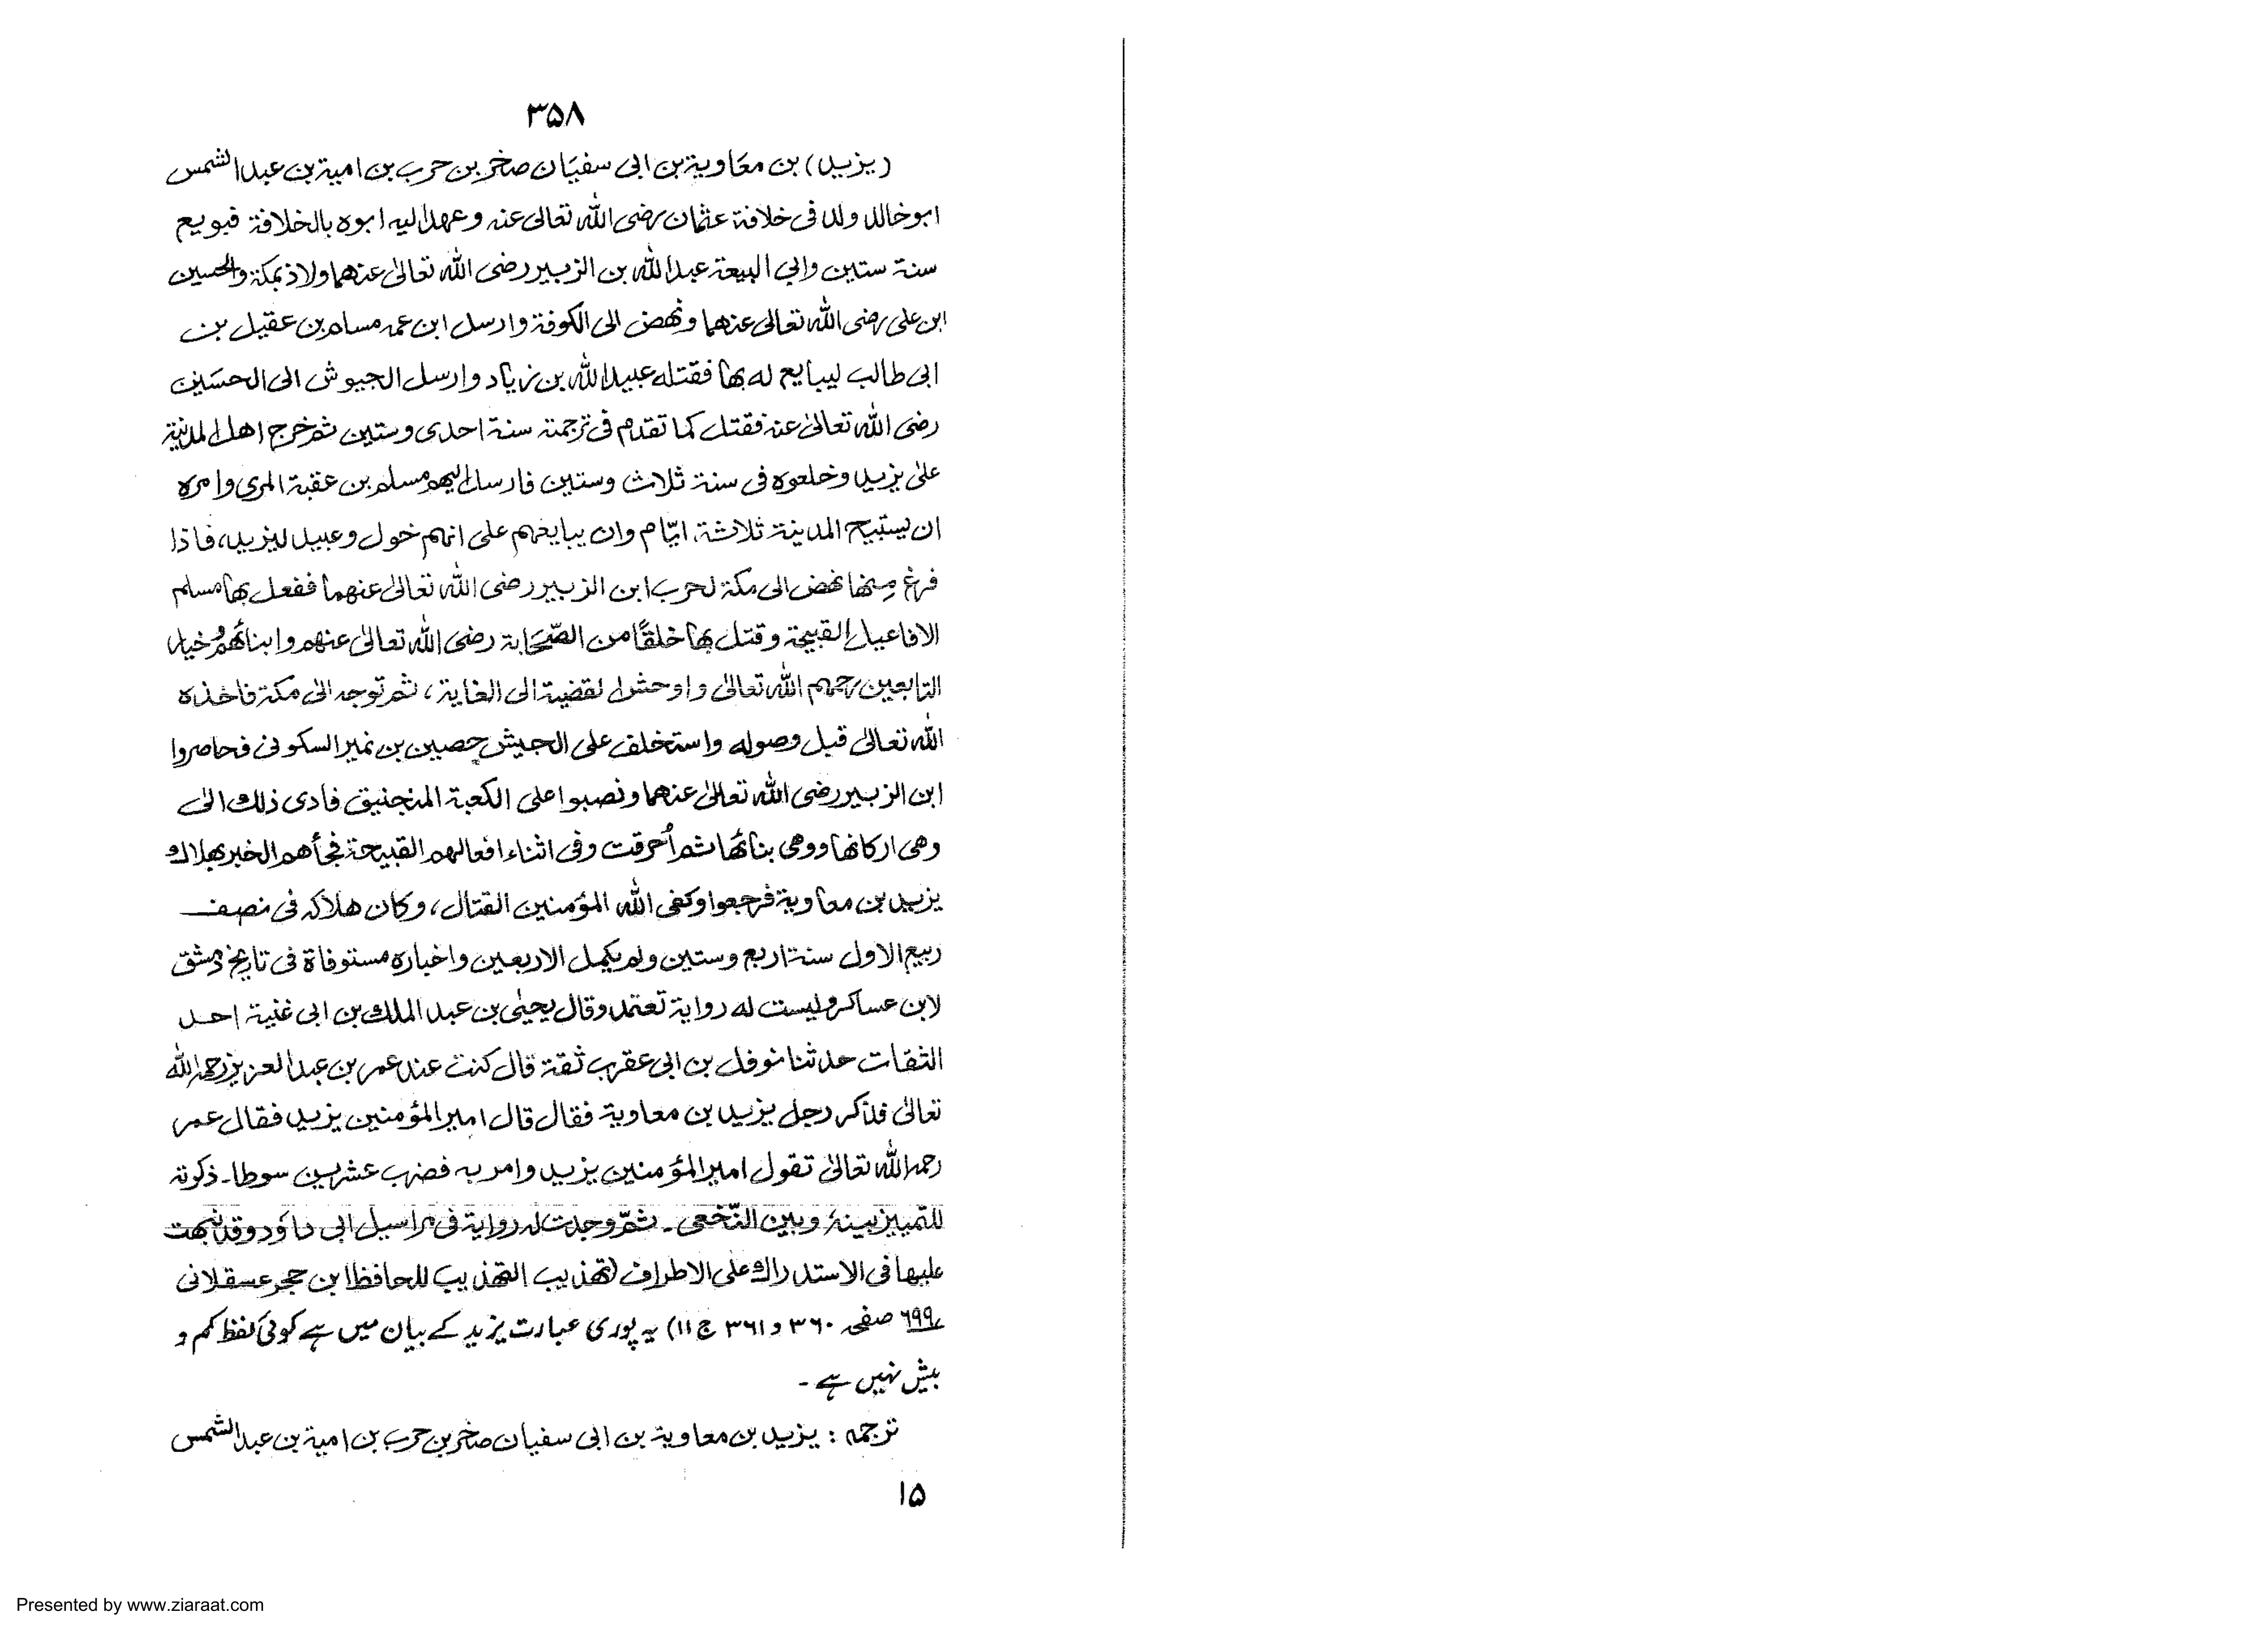 ۳۵۸
(یزید) بن معاویة بن ابی سفیان صخر بن حرب بن امیة بن عبد الشمس
ابو خالد ولد فی خلافة عثمان رضی الله تعالی عنه وعهد الیه ابوه بالخلافة فبویع
سنة ستین وابی البیعة عبد الله بن الزبیر رضی الله تعالیٰ عنهما ولاذ بمکة والحسین
ابن علی رضی الله تعالیٰ عنهما ونهض الی الکوفة وارسل ابن عمه مسلم بن عقیل بن
ابی طالب لیبایع له بها فقتله عبید الله بن زیاد وارسل الجیوش الی الحسین
رضی الله تعالیٰ عنه فقتل کما تقدم فی ترجمته سنة احدی وستین ثم خرج اهل المدینة
علیٰ یزید وخلعوه فی سنة ثلاث وستین فارسل الیهم مسلم بن عقبة المری وامره
ان یستبیح المدینة ثلاثة ایّام وان یبایعهم علی انهم خول وعبید لیزید، فاذا
فرغ منها نهض الی مکة لحرب ابن الزبیر رضی الله تعالیٰ عنهما ففعل بها مسلم
الافاعیل القبیحة وقتل بها خلقًا من الصّحابة رضی الله تعالیٰ عنهم وابنائهم وخیار
التابعین رحمهم الله تعالیٰ وافحش القضیة الی الغایة، ثم توجه الیٰ مکة فاخذه
الله تعالیٰ قبل وصوله واستخلف علی الجیش حصین بن نمیر السکونی فحاصروا
ابن الزبیر رضی الله تعالیٰ عنهما ونصبوا علی الکعبة المنجنیق فادی ذلك الیٰ
وهی ارکانها ووهی بنائها ثم أُحرقت وفی اثناء افعالهم القبیحة فجأهم الخبر بهلاك
یزید بن معاویة فرجعوا وکفی الله المؤمنین القتال، وکان هلاکه فی نصف
ربیع الاول سنة اربع وستین ولم یکمل الاربعین واخباره مستوفاة فی تاریخ دمشق
لابن عساکر ولیست له روایة تعتمد وقال یحییٰ بن عبد الملك بن ابی غنیة احد
الثقات حدثنا نوفل بن ابی عقرب ثقة قال کنت عند عمر بن عبد العزیز رحمه الله
تعالیٰ فذکر رجل یزید بن معاویة فقال قال امیر المؤمنین یزید فقال عمر
رحمه الله تعالیٰ تقول امیر المؤمنین یزید وامر به فضرب عشرین سوطا۔ ذکرته
للتمییز بینهٗ وبین النّخعی۔ ثمّ وجدت له روایة فی مراسیل ابی داؤد وقد نبهت
علیها فی الاستدراك علی الاطراف (تهذیب التهذیب للحافظ ابن حجر عسقلانی
۶۹۹ صفحہ ۳۶۰ و ۳۶۱ ج ۱۱) یہ پوری عبارت یزید کے بیان میں ہے کوئی لفظ کم و
بیش نہیں ہے۔
ترجمہ : یزید بن معاویة بن ابی سفیان صخر بن حرب بن امیة بن عبد الشمس
۱۵
Presented by www.ziaraat.com